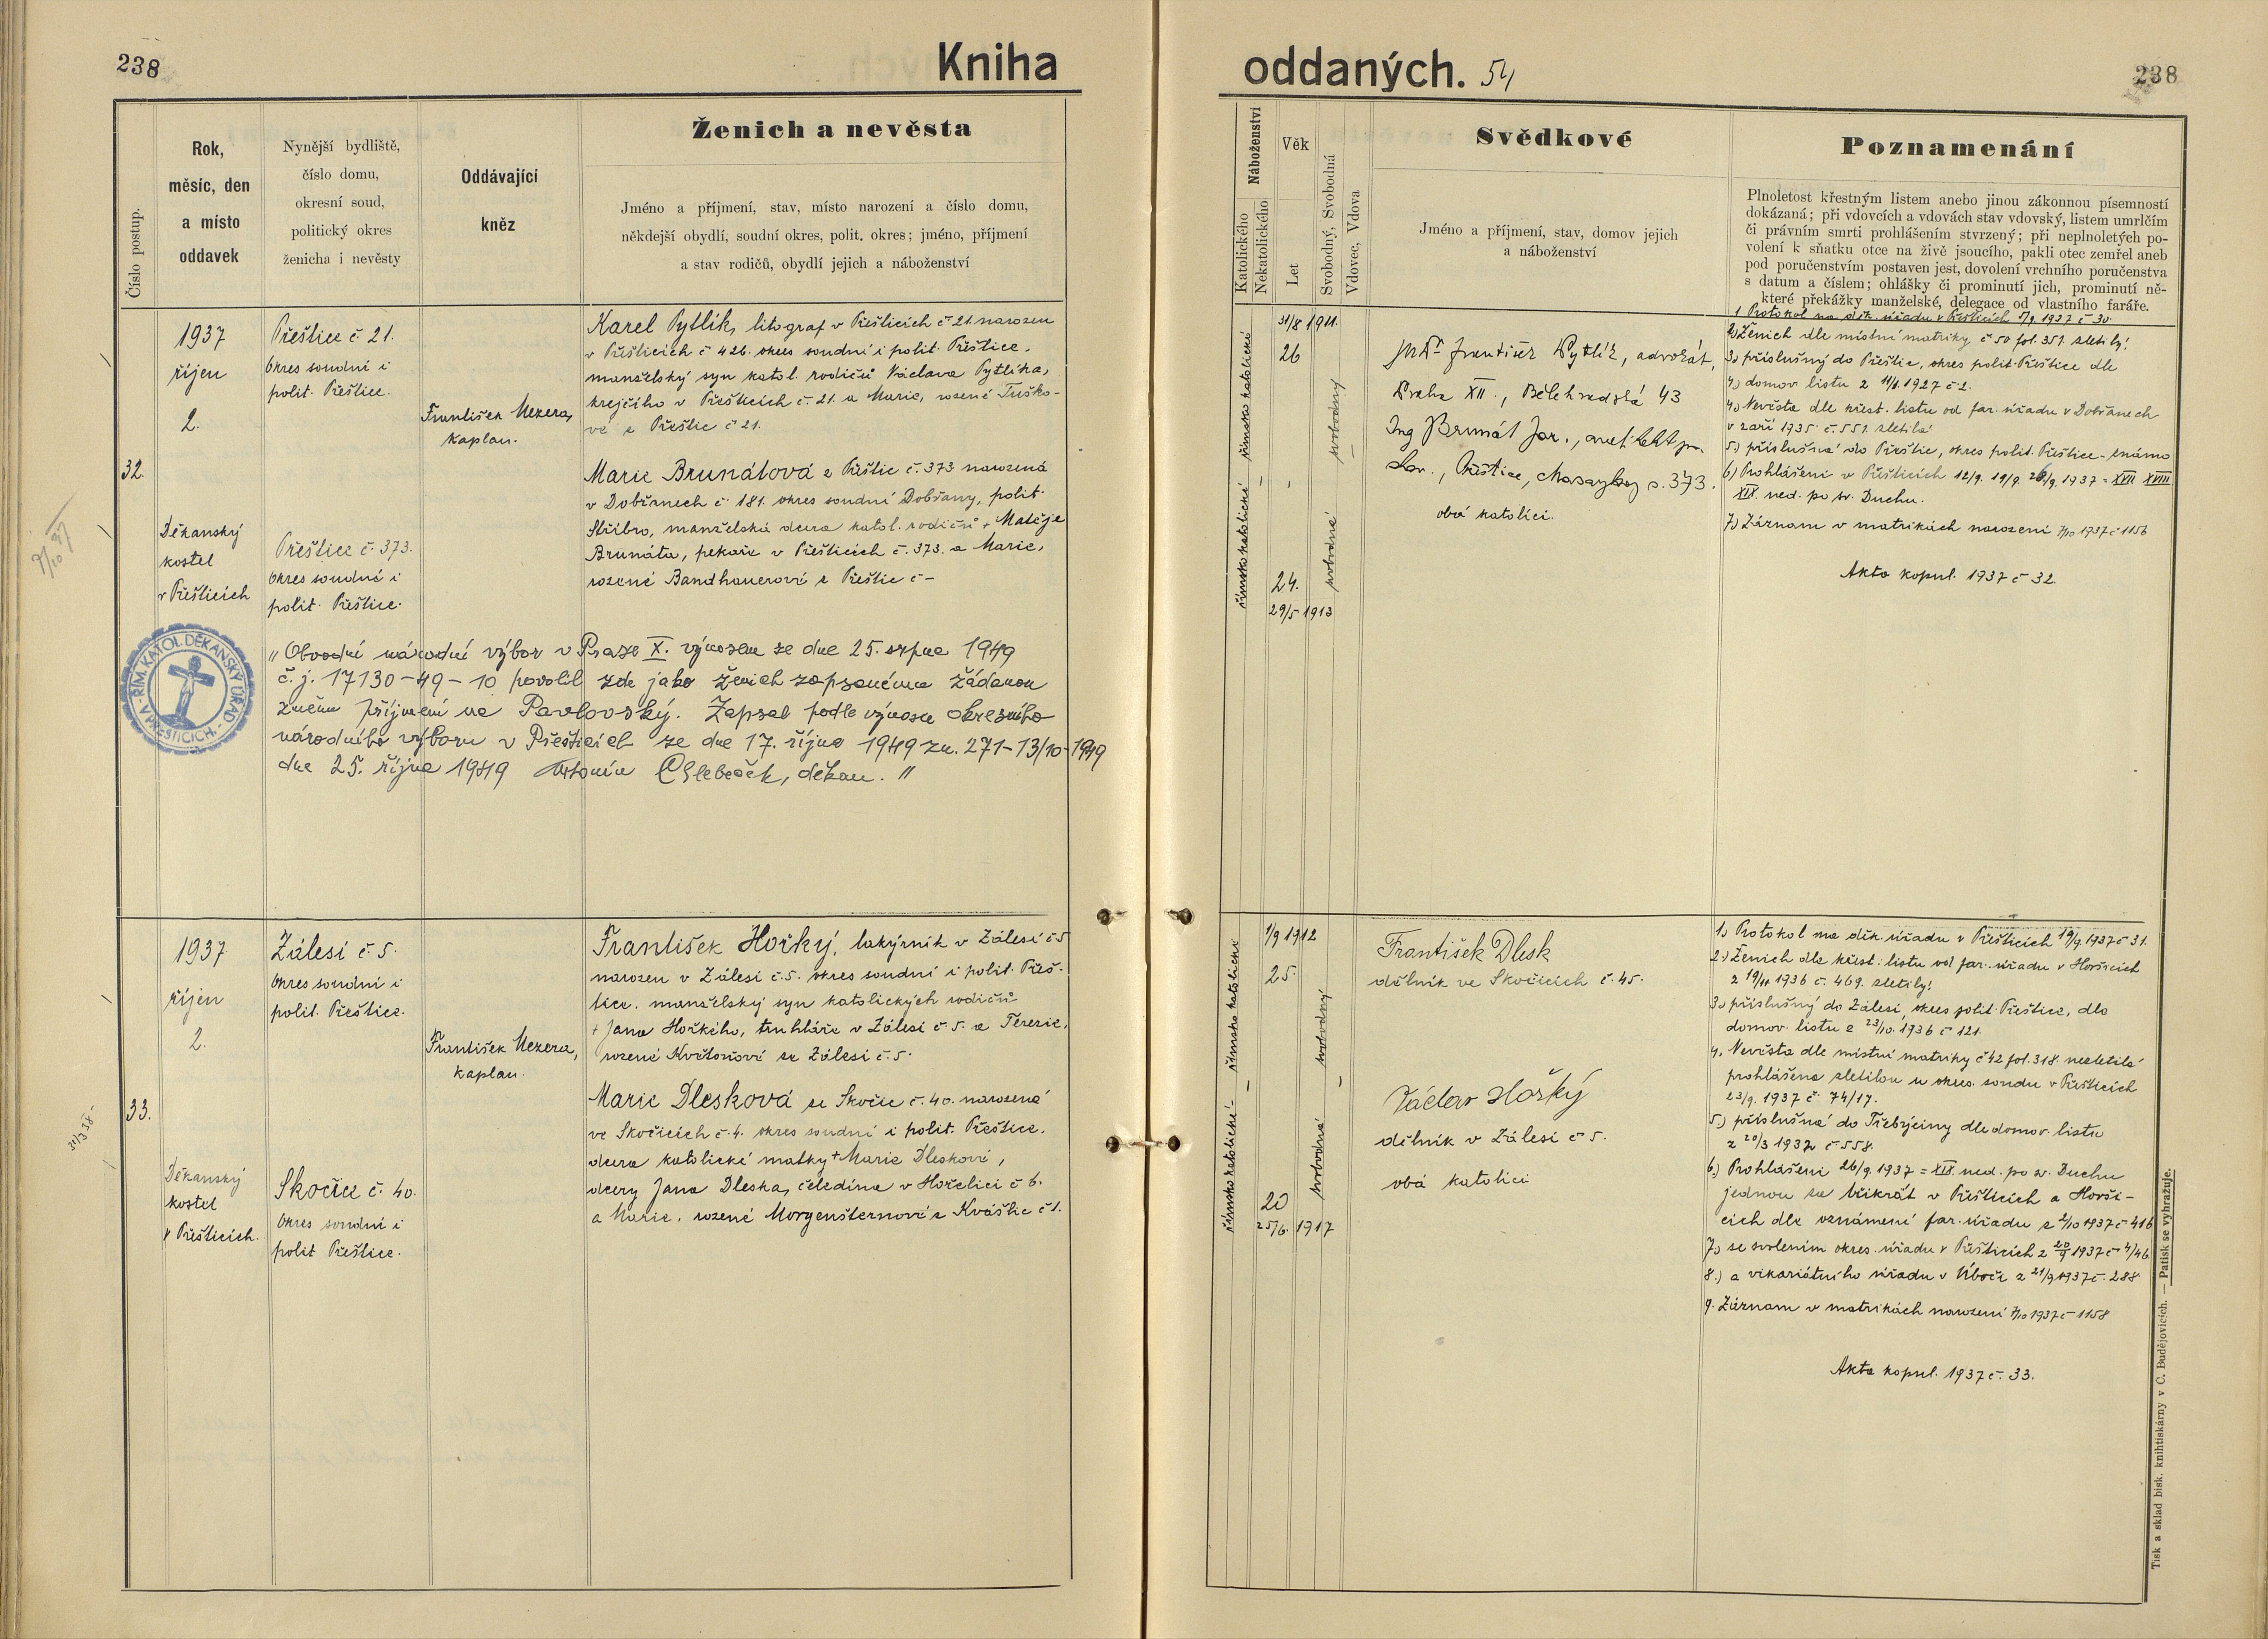 238
Kniha
Číslo postup.
Rok,
měsíc, den
a místo
oddavek
Nynější bydliště,
číslo domu,
okresní soud,
politický okres
ženicha i nevěsty
Oddávající
kněz
Ženich a nevěsta
Jméno a příjmení, stav, místo narození a číslo domu,
někdejší obydlí, soudní okres, polit. okres; jméno, příjmení
a stav rodičů, obydlí jejich a náboženství
32.
1937
říjen
2.
Děkanský
kostel
v Přešticích
Přeštice č. 21.
Okres soudní i
polit. Přeštice.
Přeštice č. 373.
Okres soudní i
polit. Přeštice.
František Mezera,
kaplan.
Karel Pytlík, litograf v Přešticích č 21. narozen
v Přešticích č 426. okres soudní i polit. Přeštice.
manželský syn katol. rodičů Václava Pytlíka,
krejčího v Přešticích č. 21. a Marie, rozené Tuško-
vé z Přeštic č 21.
Marie Brunátová z Přeštic č. 373 narozená
v Dobřanech č 181. okres soudní Dobřany, polit.
Stříbro, manželská dcera katol. rodičů + Matěje
Brunáta, pekaře v Přešticích č. 373. a Marie,
rozené Bandhauerové z Přeštic č -
ŘÍM. KATOL. DĚKANSKÝ ÚŘAD V PŘEŠTICÍCH.
„Obvodní národní výbor v Praze X. výnosem ze dne 25. srpna 1949
č. j. 17130-49-10 povolil zde jako ženich zapsanému žádanou
změnu příjmení na Pavlovský. Zapsal podle výnosu okresního
národního výboru v Přešticích ze dne 17. října 1949 zn. 271-13/10-1949
dne 25. října 1949 Antonín Chlebeček, děkan. "
33.
1937
říjen
2.
Děkanský
kostel
v Přešticích.
Zálesí č. 5.
Okres soudní i
polit. Přeštice.
Skočice č. 40.
Okres soudní i
polit Přeštice.
František Mezera,
kaplan.
František Hořký, lakýrník v Zálesí č 5
narozen v Zálesí č. 5. okres soudní i polit. Přeš-
tice. manželský syn katolických rodičů
+ Jana Hořkého, truhláře v Zálesí č. 5. a Terezie,
rozené Květoňové ze Zálesí č. 5.
Marie Dlesková ze Skočic č. 40. narozená
ve Skočicích č. 4. okres soudní i polit. Přeštice.
dcera katolické matky + Marie Dleskové,
dcery Jana Dleska, čeledína v Hořelici č 6.
a Marie, rozené Morgenšternové z Kváštic č 1.
oddaných. 54
238
Náboženství
Katolického
Nekatolického
Věk
Let
Svobodný, Svobodná
Vdovec, Vdova
Svědkové
Jméno a příjmení, stav, domov jejich
a náboženství
Poznamenání
Plnoletost křestným listem anebo jinou zákonnou písemností
dokázaná; při vdovcích a vdovách stav vdovský, listem umrlčím
či právním smrti prohlášením stvrzený; při neplnoletých po-
volení k sňatku otce na živě jsoucího, pakli otec zemřel aneb
pod poručenstvím postaven jest, dovolení vrchního poručenstva
s datum a číslem; ohlášky či prominutí jich, prominutí ně-
které překážky manželské, delegace od vlastního faráře.
římsko katolické
římsko katolické
31/8 1911.
26
24.
29/5 1913
svobodný
svobodná
JUDr František Pytlík, advokát,
Praha XII., Bělehradská 43
Ing Brunát Jar., architekt
Přeštice, č. 373.
obá katolíci.
1. Protokol na děk. úřadu v Přešticích 1/9 1937 č 30.
2) Ženich dle místní matriky č 50 fol. 351. zletilý!
3) příslušný do Přeštic, okres polit. Přeštice dle
4) domov listu z 11/1. 1927 č 2.
4) Nevěsta dle křest. listu od far. úřadu v Dobřanech
v září 1935 č. 551. zletilá
5) příslušná do Přeštic, okres polit. Přeštice - známo
6) Prohlášeni v Přešticích 12/9. 19/9. 26/9. 1937 = XVII XVIII
XIX. ned. po sv. Duchu.
7) Záznam v matrikách narození 7/10 1937 č 1156
Akta kopul. 1937 č 32.
římsko katolické
římsko katolické
1/9 1912
25.
20
25/6. 1917
svobodný
svobodná
František Dlesk
dělník ve Skočicích č. 45.
Václav Hořký
dělník v Zálesí č 5.
obá katolíci
1) Protokol na děk. úřadu v Přešticích 19/9 1937 č 31.
2) Ženich dle křest. listu od far. úřadu v Horšicích
z 19/11 1936 č. 469. zletilý!
3) příslušný do Zálesí, okres polit. Přeštice, dle
domov. listu z 23/10. 1936 č 121.
4. Nevěsta dle místní matriky č 42 fol. 318 nezletilá
prohlášena zletilou u okres. soudu v Přešticích
23/9. 1937 č. 74/17.
5) příslušná do Třebýciny dle domov. listu
z 20/3 1937 č. 558.
6) Prohlášeni 26/9. 1937 = XIX. ned. po sv. Duchu
jednou za třikrát v Přešticích a Horši-
cích dle oznámení far. úřadu z 2/10 1937 č 416
7) se svolením okres. úřadu v Přešticích z 20/9 1937 č 4/46
8.) a vikariátního úřadu v Úboči z 21/9 1937 č. 288
9. Záznam v matrikách narození 7/10 1937 č 1158
Akta kopul. 1937 č. 33.
Tisk a sklad bisk. knihtiskárny v C. Budějovicích. — Patisk se vyhražuje.